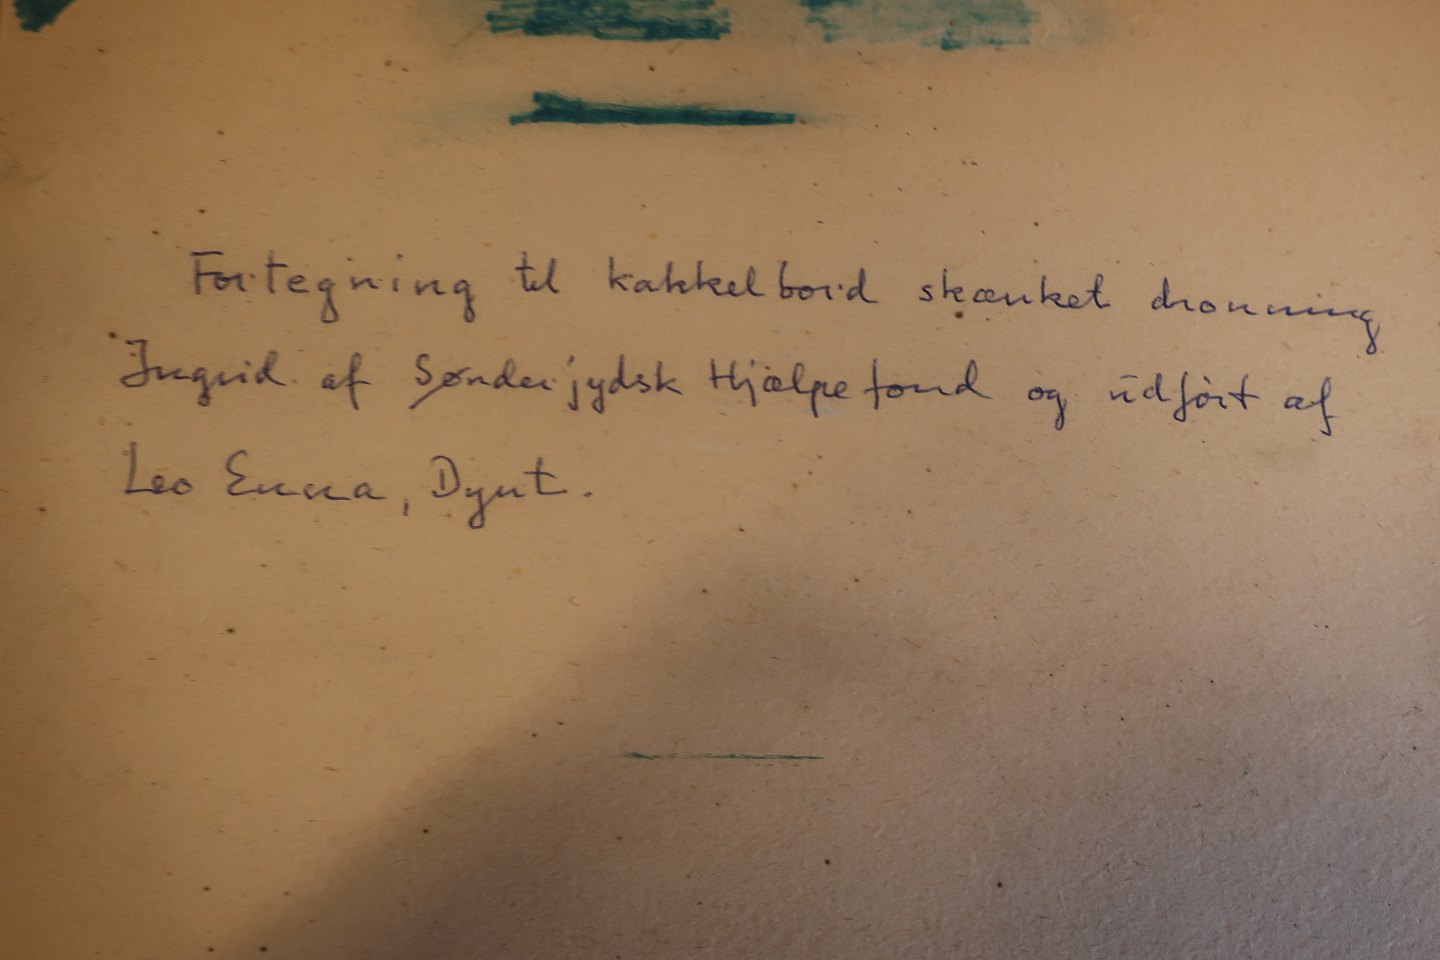 Fortegning til kakkelbord skænket dronning
Ingrid af Sønderjydsk Hjælpefond og udført af
Leo Enna, Dynt.